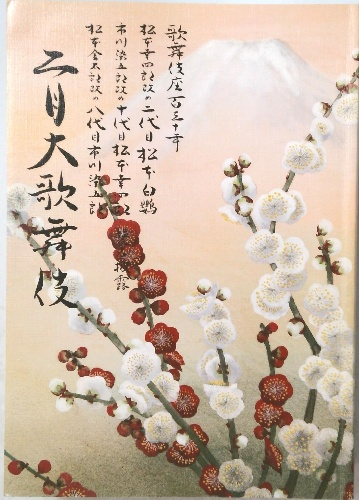 歌舞伎座百三十年
松本幸四郎改め二代目松本白鸚
市川染五郎改め十代目松本幸四郎
松本金太郎改め八代目市川染五郎
披露
二月大歌舞伎